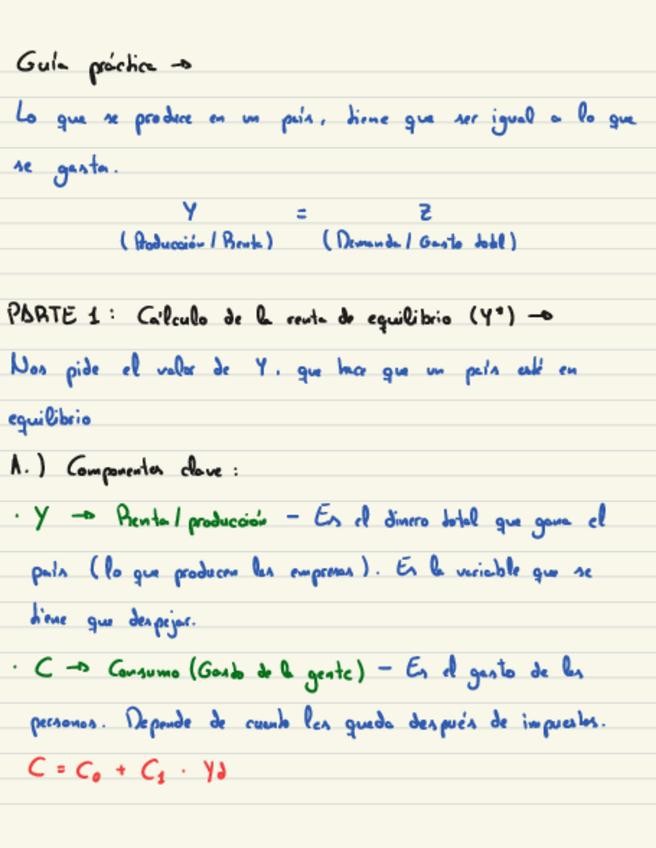 Guía práctica →
Lo que se produce en un país, tiene que ser igual a lo que
se gasta.
Y = Z
(Producción / Renta) (Demanda / Gasto total)
PARTE 1: Cálculo de la renta de equilibrio (Y*) →
Nos pide el valor de Y, que hace que un país esté en
equilibrio
A.) Componentes clave:
· Y → Renta / producción - Es el dinero total que gana el
país (lo que producen las empresas). Es la variable que se
tiene que despejar.
· C → Consumo (Gasto de la gente) - Es el gasto de las
personas. Depende de cuanto les queda después de impuestos.
C = C₀ + C₁ · Yd